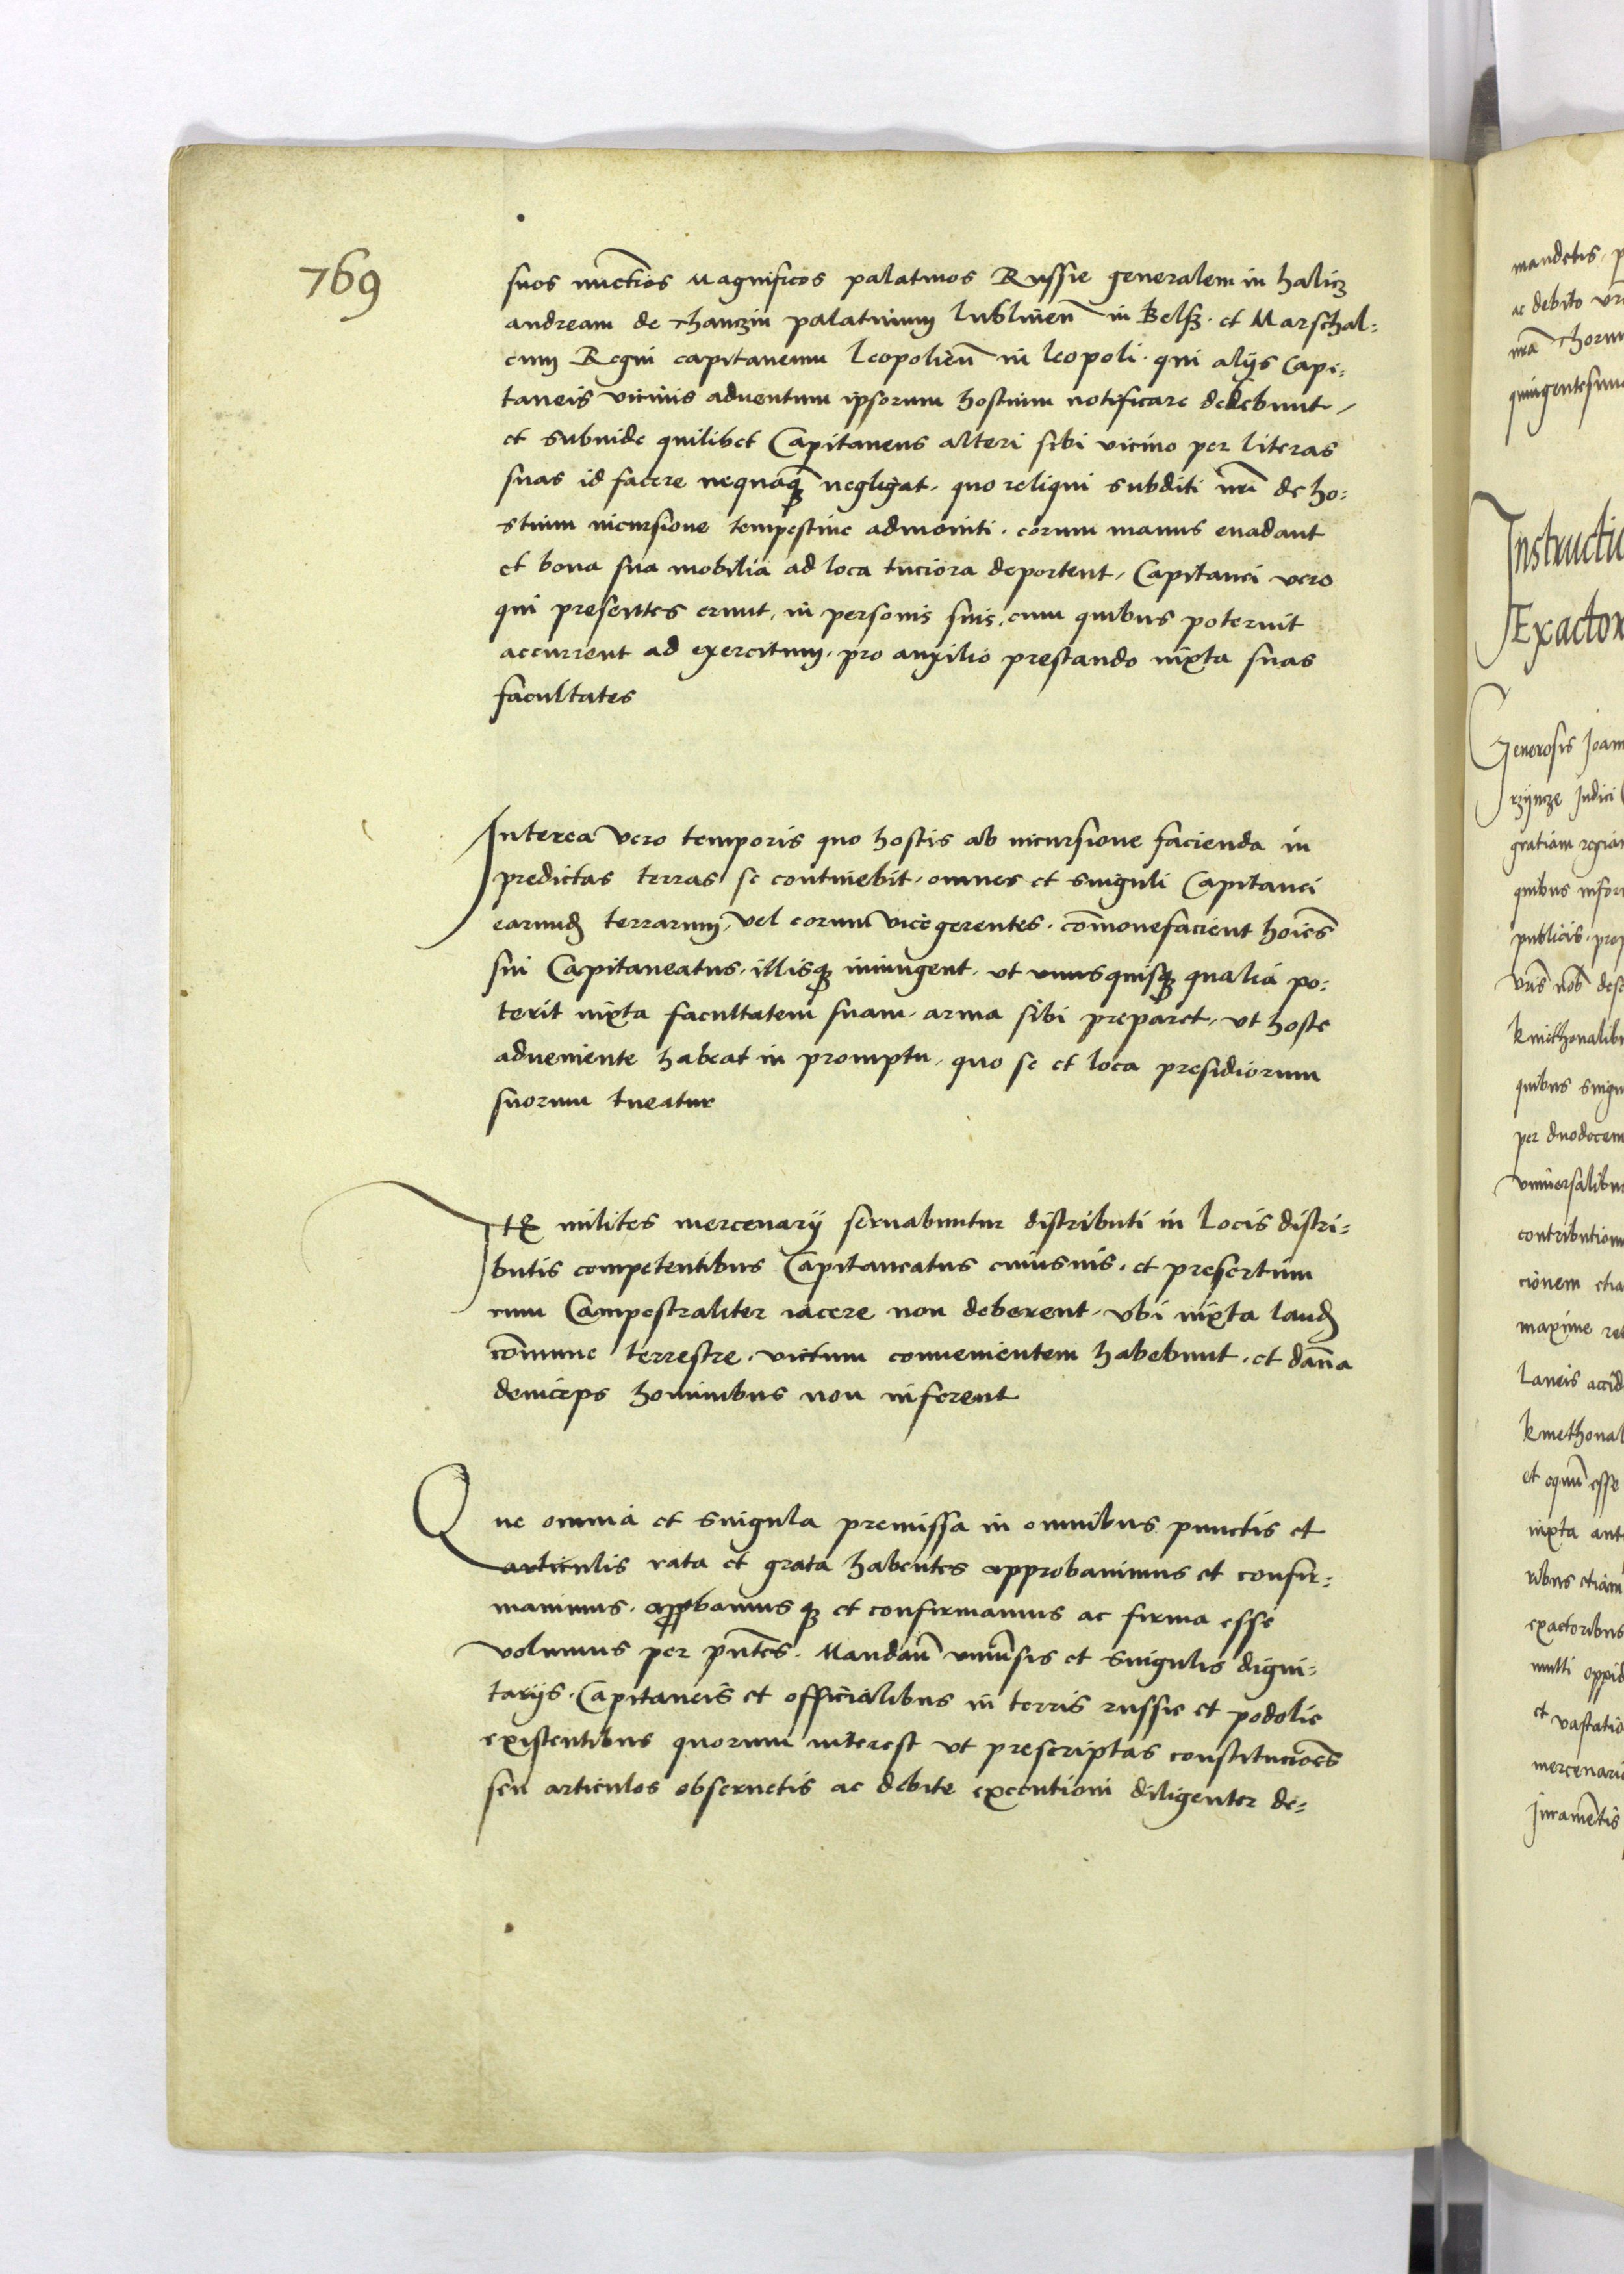 769
suos nuncios Magnificos palatinos Russie generalem in halicz
andream de Thanczin palatinum lublineñ in Belsz. et Marschal=
cum Regni capitaneum leopolieñ in leopoli. qui alijs Capi=
taneis vicinis adventum ipsorum hostium notificare debebunt,
et subinde quilibet Capitaneus alteri sibi vicino per literas
suas id facere nequaq̃ negligat, quo reliqui subditi nr̃i de ho=
stium incursione tempestive admoniti. eorum manus evadant
et bona sua mobilia ad loca tuciora deportent, Capitanei vero
qui presentes erunt, in personis suis, cum quibus poterunt
accurrent ad exercitum, pro auxilio prestando iuxta suas
facultates
Interea vero temporis quo hostis ab incursione facienda in
predictas terras se continebit, omnes et singuli Capitanei
earund terrarum, vel eorum vice gerentes, com̃onefacient hoĩes
sui Capitaneatus, illisq iniungent, ut unusquisq qualia po=
terit iuxta facultatem suam, arma sibi preparet, ut hoste
adveniente habeat in promptu, quo se et loca presidiorum
suorum tueatur
Itẽ milites mercenarij servabuntur distributi in locis distri=
butis competentibus Capitaneatus cuiusvis, et presertim
cum Campestraliter iacere non deberent, ubi iuxta laud
com̃une terrestre, victum convenientem habebunt, et dam̃a
deinceps hominibus non inferent
Que omnia et singula premissa in omnibus punctis et
articulis rata et grata habentes approbavimus et confir=
mavimus, approbamus q et confirmamus ac firma esse
volumus per pñtes. Mandañ uniṽsis et singulis digni=
tarijs, Capitaneis et officialibus in terris russie et podolie
existentibus quorum interest ut prescriptas constitucioẽs
seu articulos observetis ac debite executioni diligenter de=
mandetis,
ac debito
Thorun
Instructio
Exactor
Generosis Joan
rzyncze Judici
gratiam regiam
quibus infor
publicis, prop
vr̃is nob̃ desc
kmethonalibus
quibus singu
per duodecem
universalibus
contribution
cionem etia
maxime
laneis accid
kmethonal
et equũ esse
iuxta ant
ribus etiam
exactoribus
multi oppid
et vastatio
mercenari
Juramẽtis